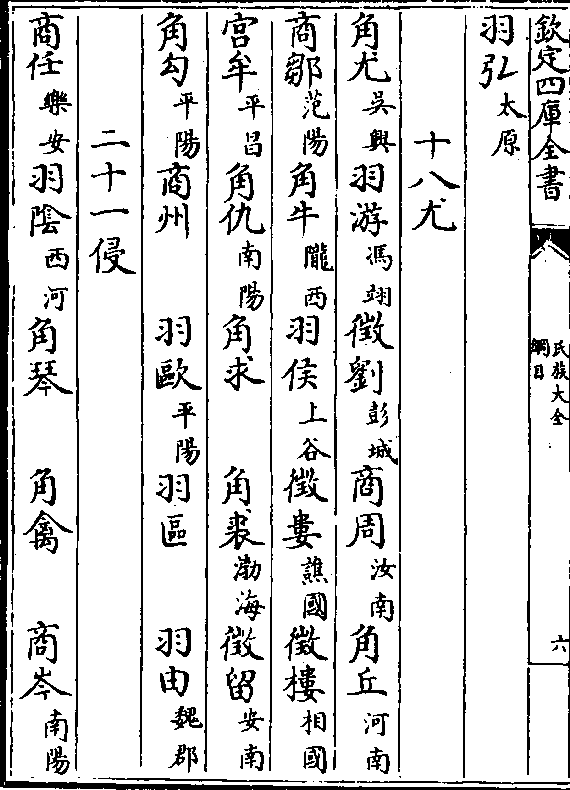 欽定四庫全書
氏族大全
綱目
六
羽弘太原
十八尤
角尤吳興羽游馮翊徵劉彭城商周汝南角丘河南
商鄒范陽角牛隴西羽侯上谷徵婁譙國徵樓相國
宫牟平昌角仇南陽角求角裘渤海徵留安南
角勾平陽商州羽歐平陽羽區羽由魏郡
二十一侵
商任樂安羽陰西河角琴角禽商岑南陽